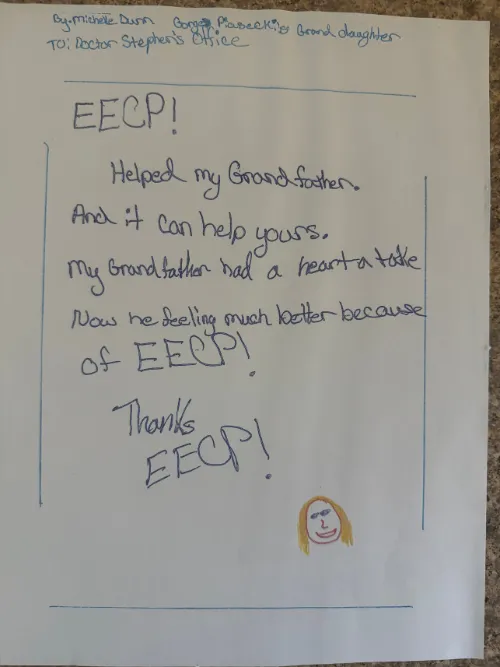 By: Michele Dunn Gorge Piasecki's Grand daughter
TO: Doctor Stephen's Office
EECP!
Helped my Grandfather.
And it can help yours.
My Grandfather had a heart a take
Now he feeling much better because
of EECP!
Thanks
EECP!